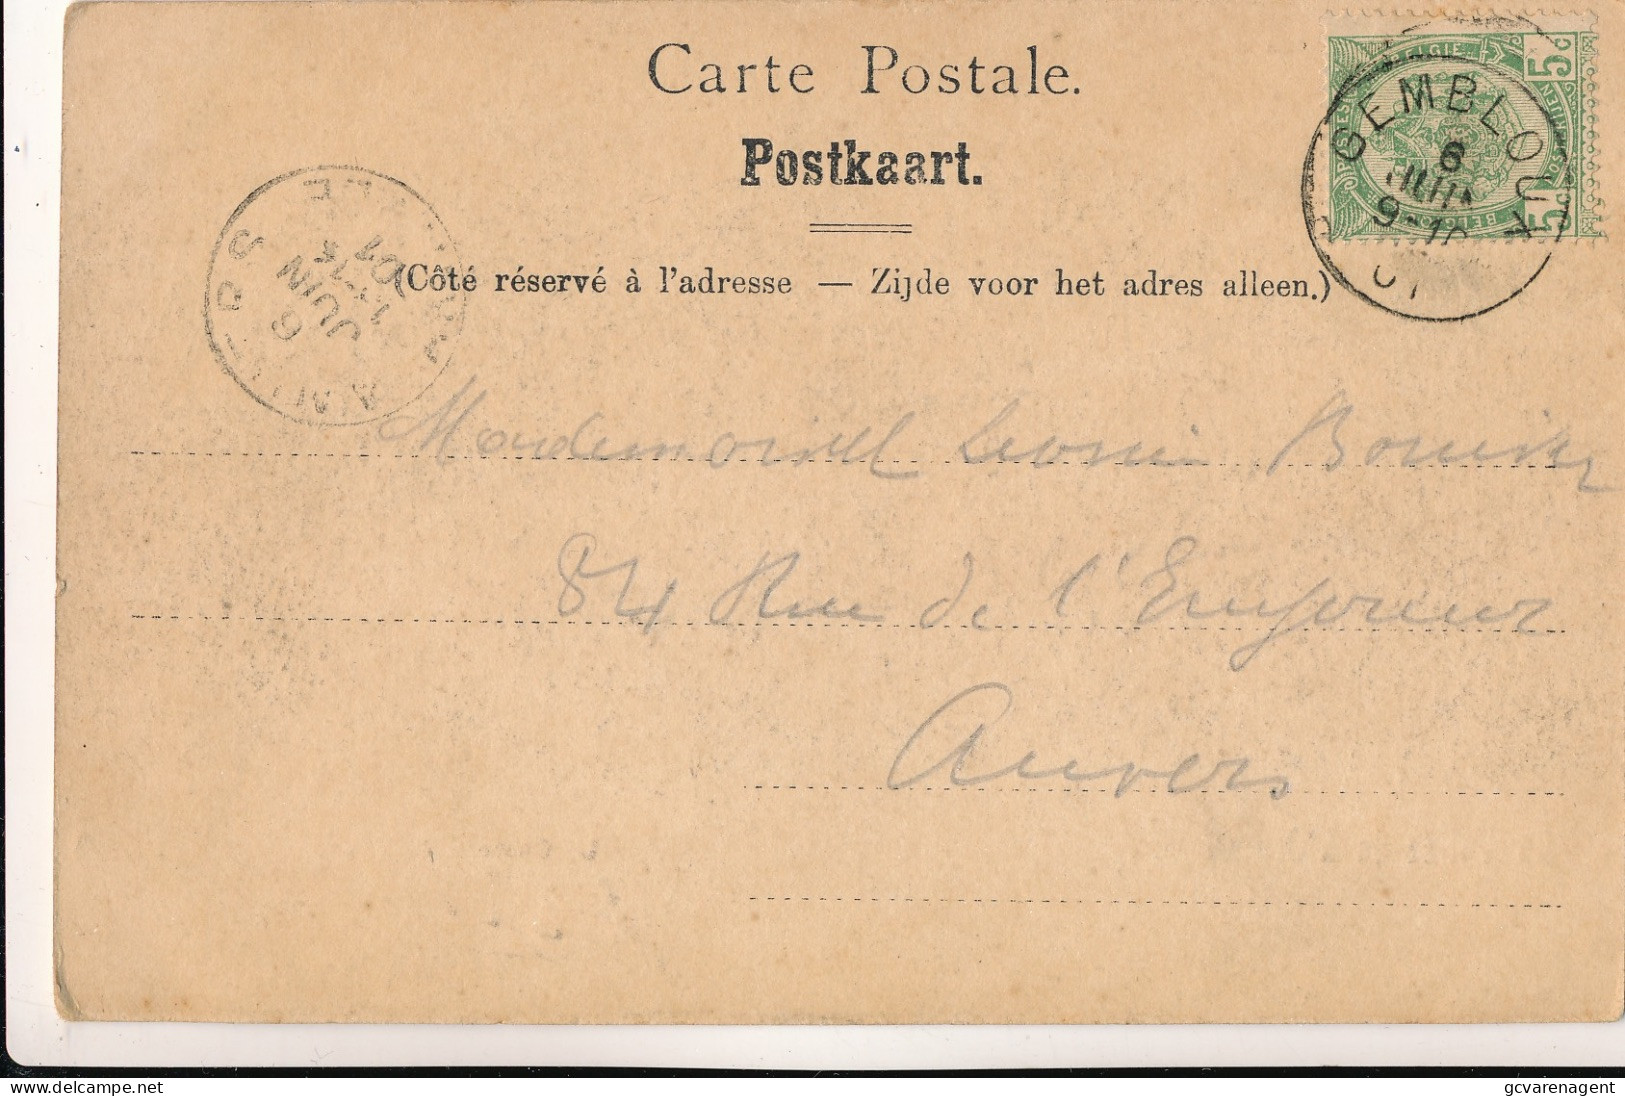 Carte Postale.
Postkaart.
(Côté réservé à l'adresse — Zijde voor het adres alleen.)
GEMBLOUX
6
JUIN
9-10
01
BELGIE
5c
BELGIQUE
5c
6
JUIN
01
Mademoiselle Leonie
84 Rue de l'Empereur
Anvers
delcampe.net
gcvarenagent